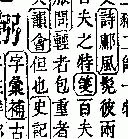 詩鄘風髧彼兩
夫之特箋百夫
問輕者包重者
韻會但也史記
字彙補古